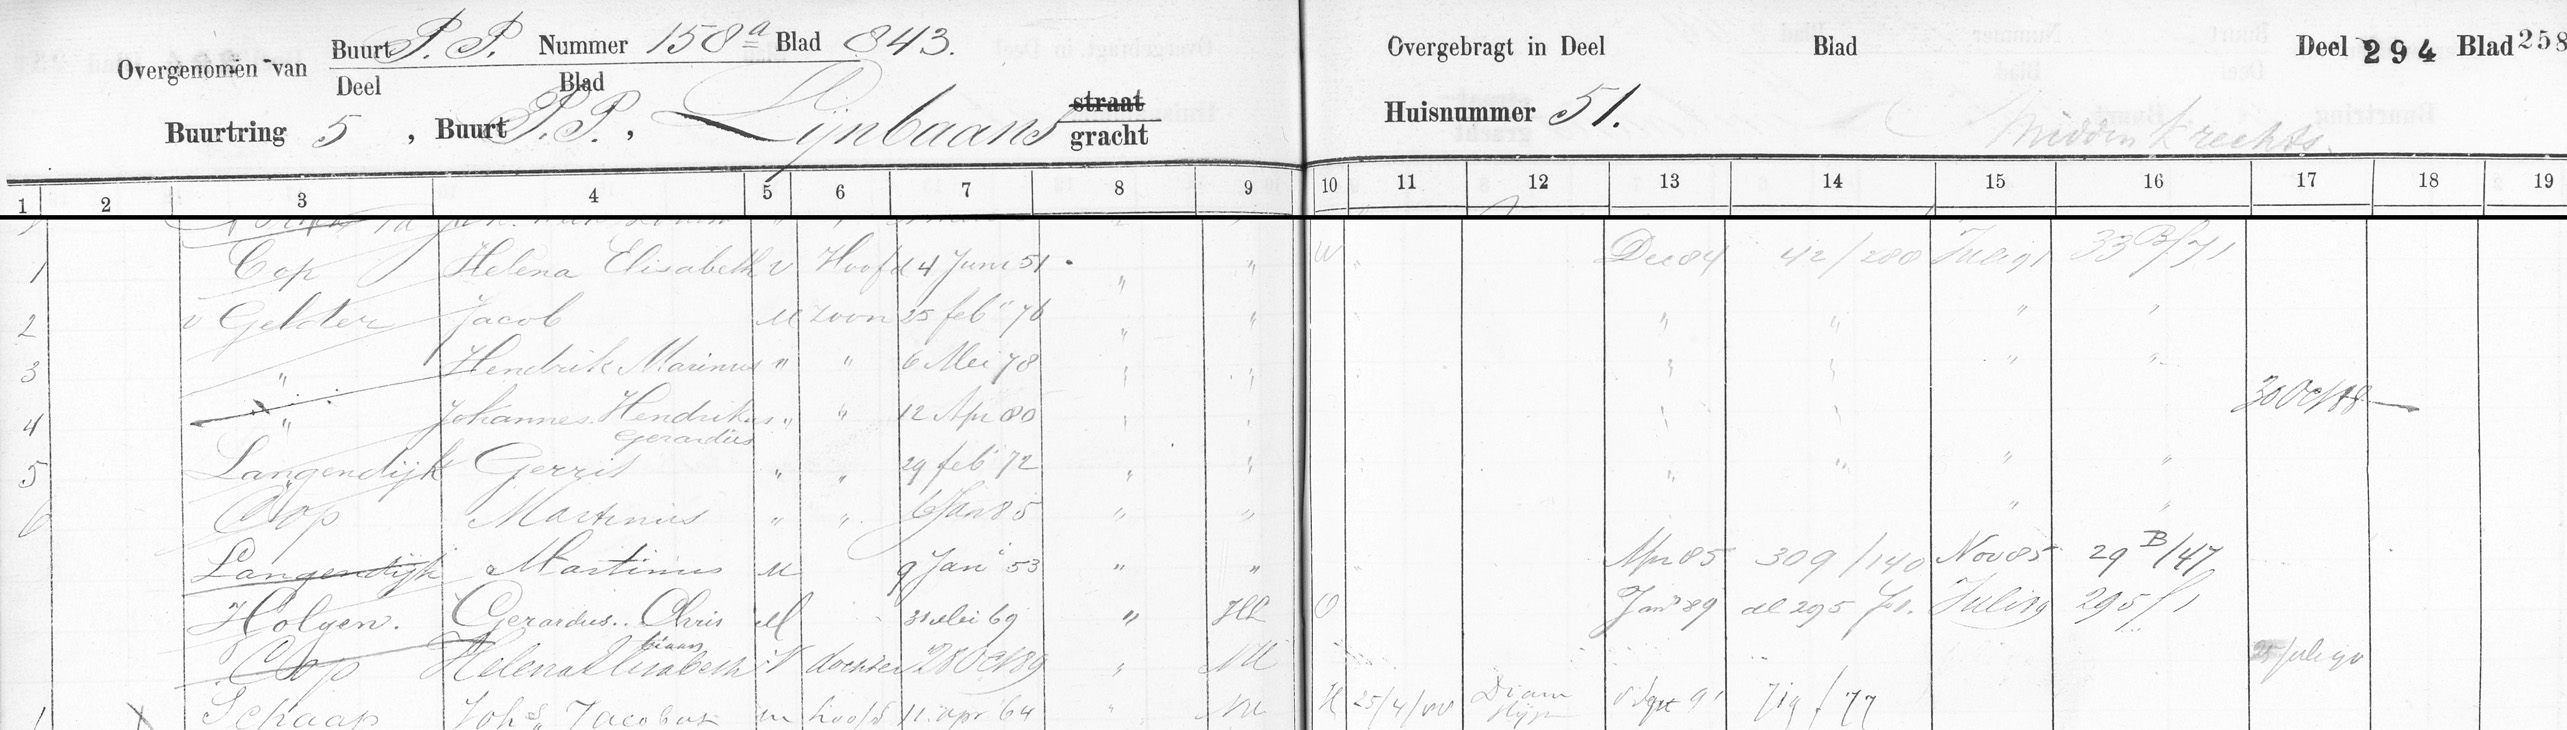 Overgenomen van Buurt P.P. Nummer 158a Blad 843.
Deel Blad
Buurtring 5, Buurt P.P., Lijnbaans straat gracht
Overgebragt in Deel Blad Deel 294 Blad 258
Huisnummer 51.
Midden & rechts.
1 2 3 4 5 6 7 8 9 10 11 12 13 14 15 16 17 18 19
1 Cop Helena Elisabeth V Hoofd 4 Juni 51 " " W Dec 84 42/280 Juli 91 33 B/71
2 v Gelder Jacob M Zoon 25 feb 76 " " " " " "
3 " Hendrik Marinus " " 6 Mei 78 " " " " " "
4 " Johannes Hendrikus Gerardus " " 12 Apr 80 " " " " 30 Oct 88
5 Langendijk Gerrit " " 29 feb 72 " " " " " "
6 Cop Martinus " " 6 Jan 85 " " " "
Langendijk Martinus M 9 Jan 53 " " Apr 85 309/140 Nov 85 29 B/47
Holyen. Gerardus Chris tiaan M 31 Mei 69 " O Jan 89 dl 295 Juli 89 295 f 1
Cop Helena Elisabeth V dochter 28 Oct 89 " 25 Juli 90
1 X Schaap Johs Jacobus m hoofd 11 apr 64 " 25/4/ Diam slijper Sept 91 f 77